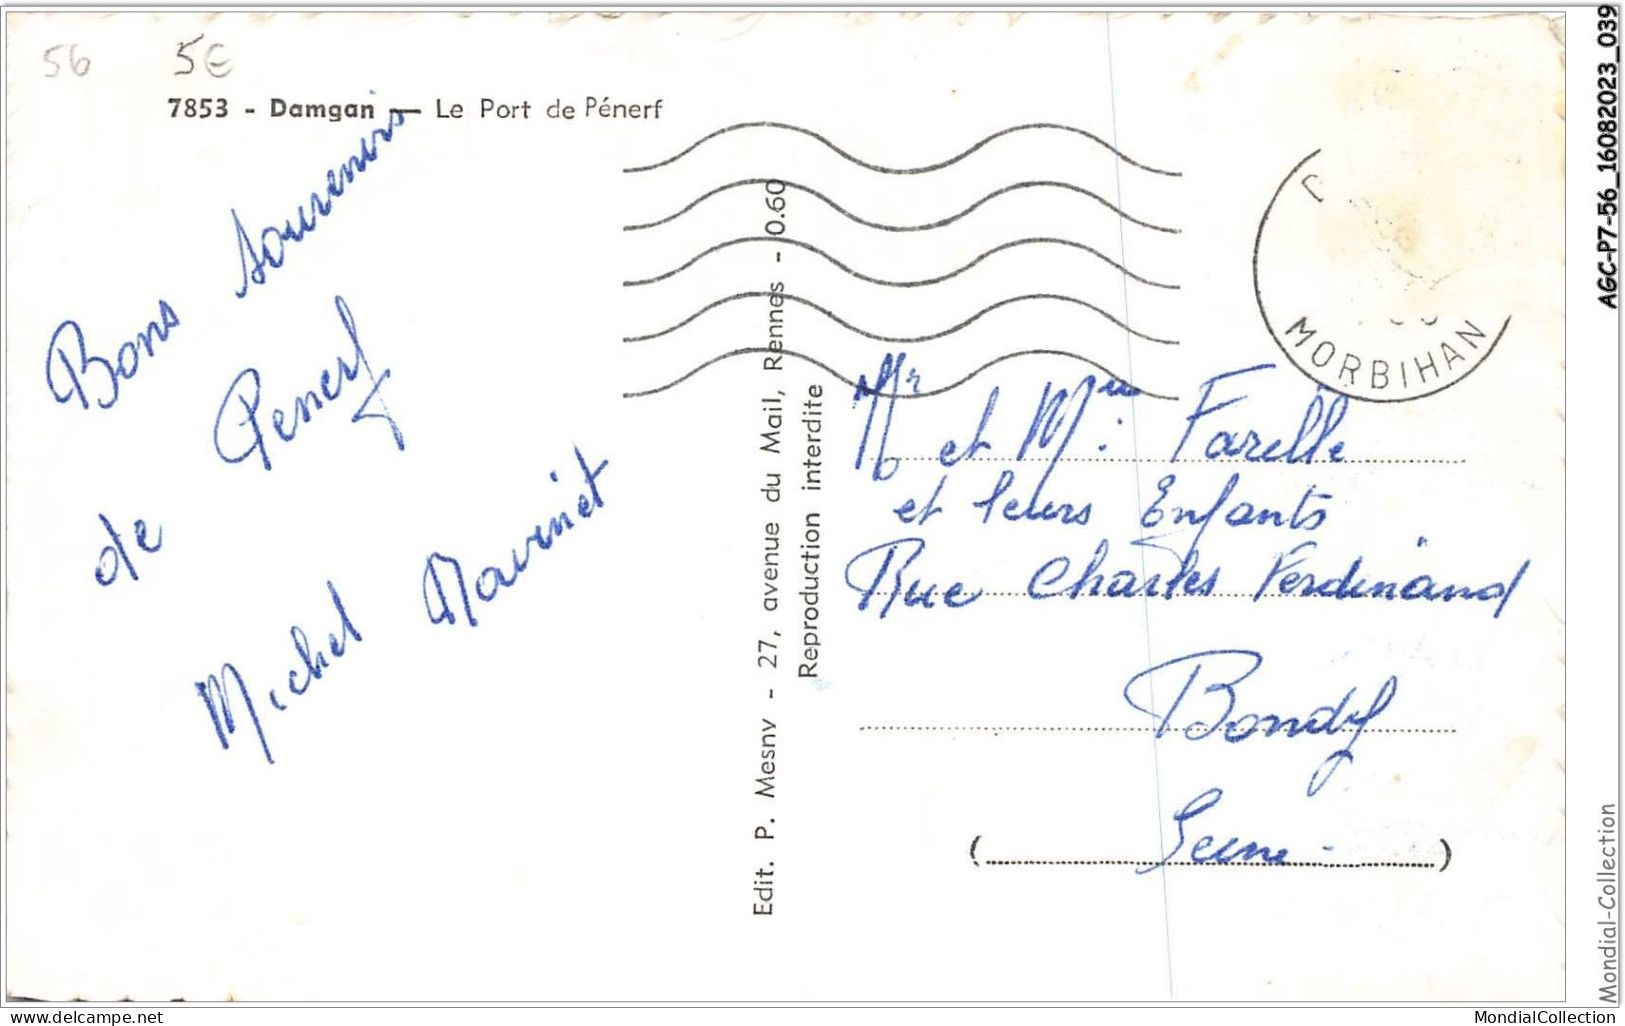 56 5€
7853 - Damgan — Le Port de Pénerf
Bons souvenirs
de Penerf
Michel Marinet
Edit. P. Mesny - 27, avenue du Mail, Rennes - 0.60
Reproduction interdite
MORBIHAN
Mr et Mme : Farelle
et leurs Enfants
Rue Charles Ferdinand
Bondy
(Seine -)
AGC-P7-56_16082023_039
Mondial-Collection
www.delcampe.net
MondialCollection